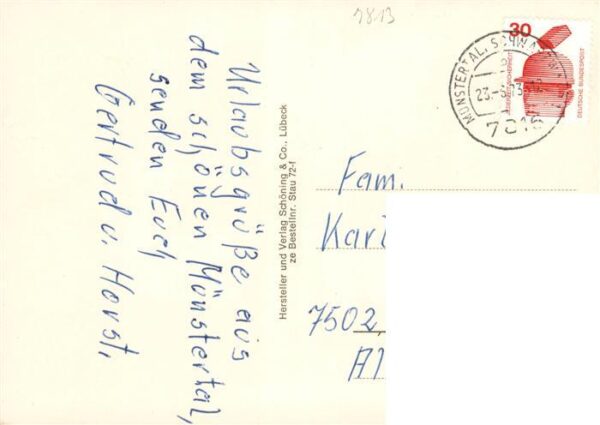 7813
Urlaubsgrüße aus
dem schönen Münstertal,
senden Euch
Gertrud u. Horst.
Hersteller und Verlag Schöning & Co., Lübeck
ze Bestellnr. Stau 72-f
30
DEUTSCHE BUNDESPOST
MÜNSTERTAL, SCHWARZW
23.-3.
7816
Fam.
Karl
7502
Al